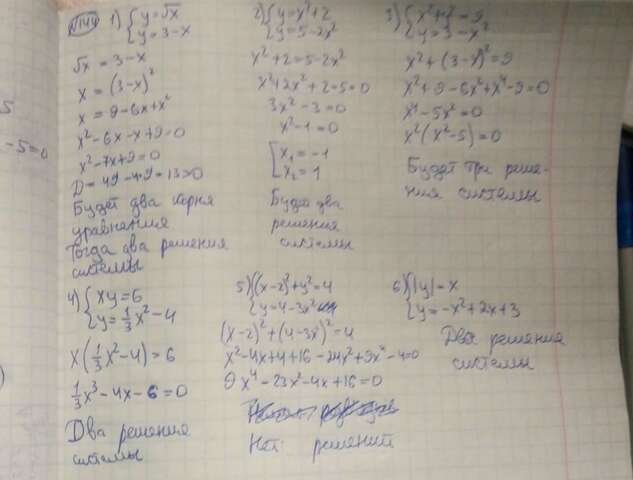 №144 1) {y=√x
{y=3-x
√x = 3-x
x = (3-x)²
x = 9-6x+x²
x²-6x-x+9=0
x²-7x+9=0
D = 49-4·9 = 13>0
Будет два корня
уравнения
Тогда два решения
системы
2) {y=x²+2
{y=5-2x²
x²+2=5-2x²
x²+2x²+2-5=0
3x²-3=0
x²-1=0
[x₁=-1
[x₂=1
Будет два
решения
системы
3) {x²+y²=9
{y=3-x²
x²+(3-x²)²=9
x²+9-6x²+x⁴-9=0
x⁴-5x²=0
x²(x²-5)=0
Будет три реше-
ния системы
4) {xy=6
{y=1/3x²-4
x(1/3x²-4)=6
1/3x³-4x-6=0
Два решения
системы
5) {(x-2)²+y²=4
{y=4-3x²
(x-2)²+(4-3x²)²=4
x²-4x+4+16-24x²+9x⁴-4=0
9x⁴-23x²-4x+16=0
Нет решений
6) {|y|=x
{y=-x²+2x+3
Два решения
системы
5
-5=0
)